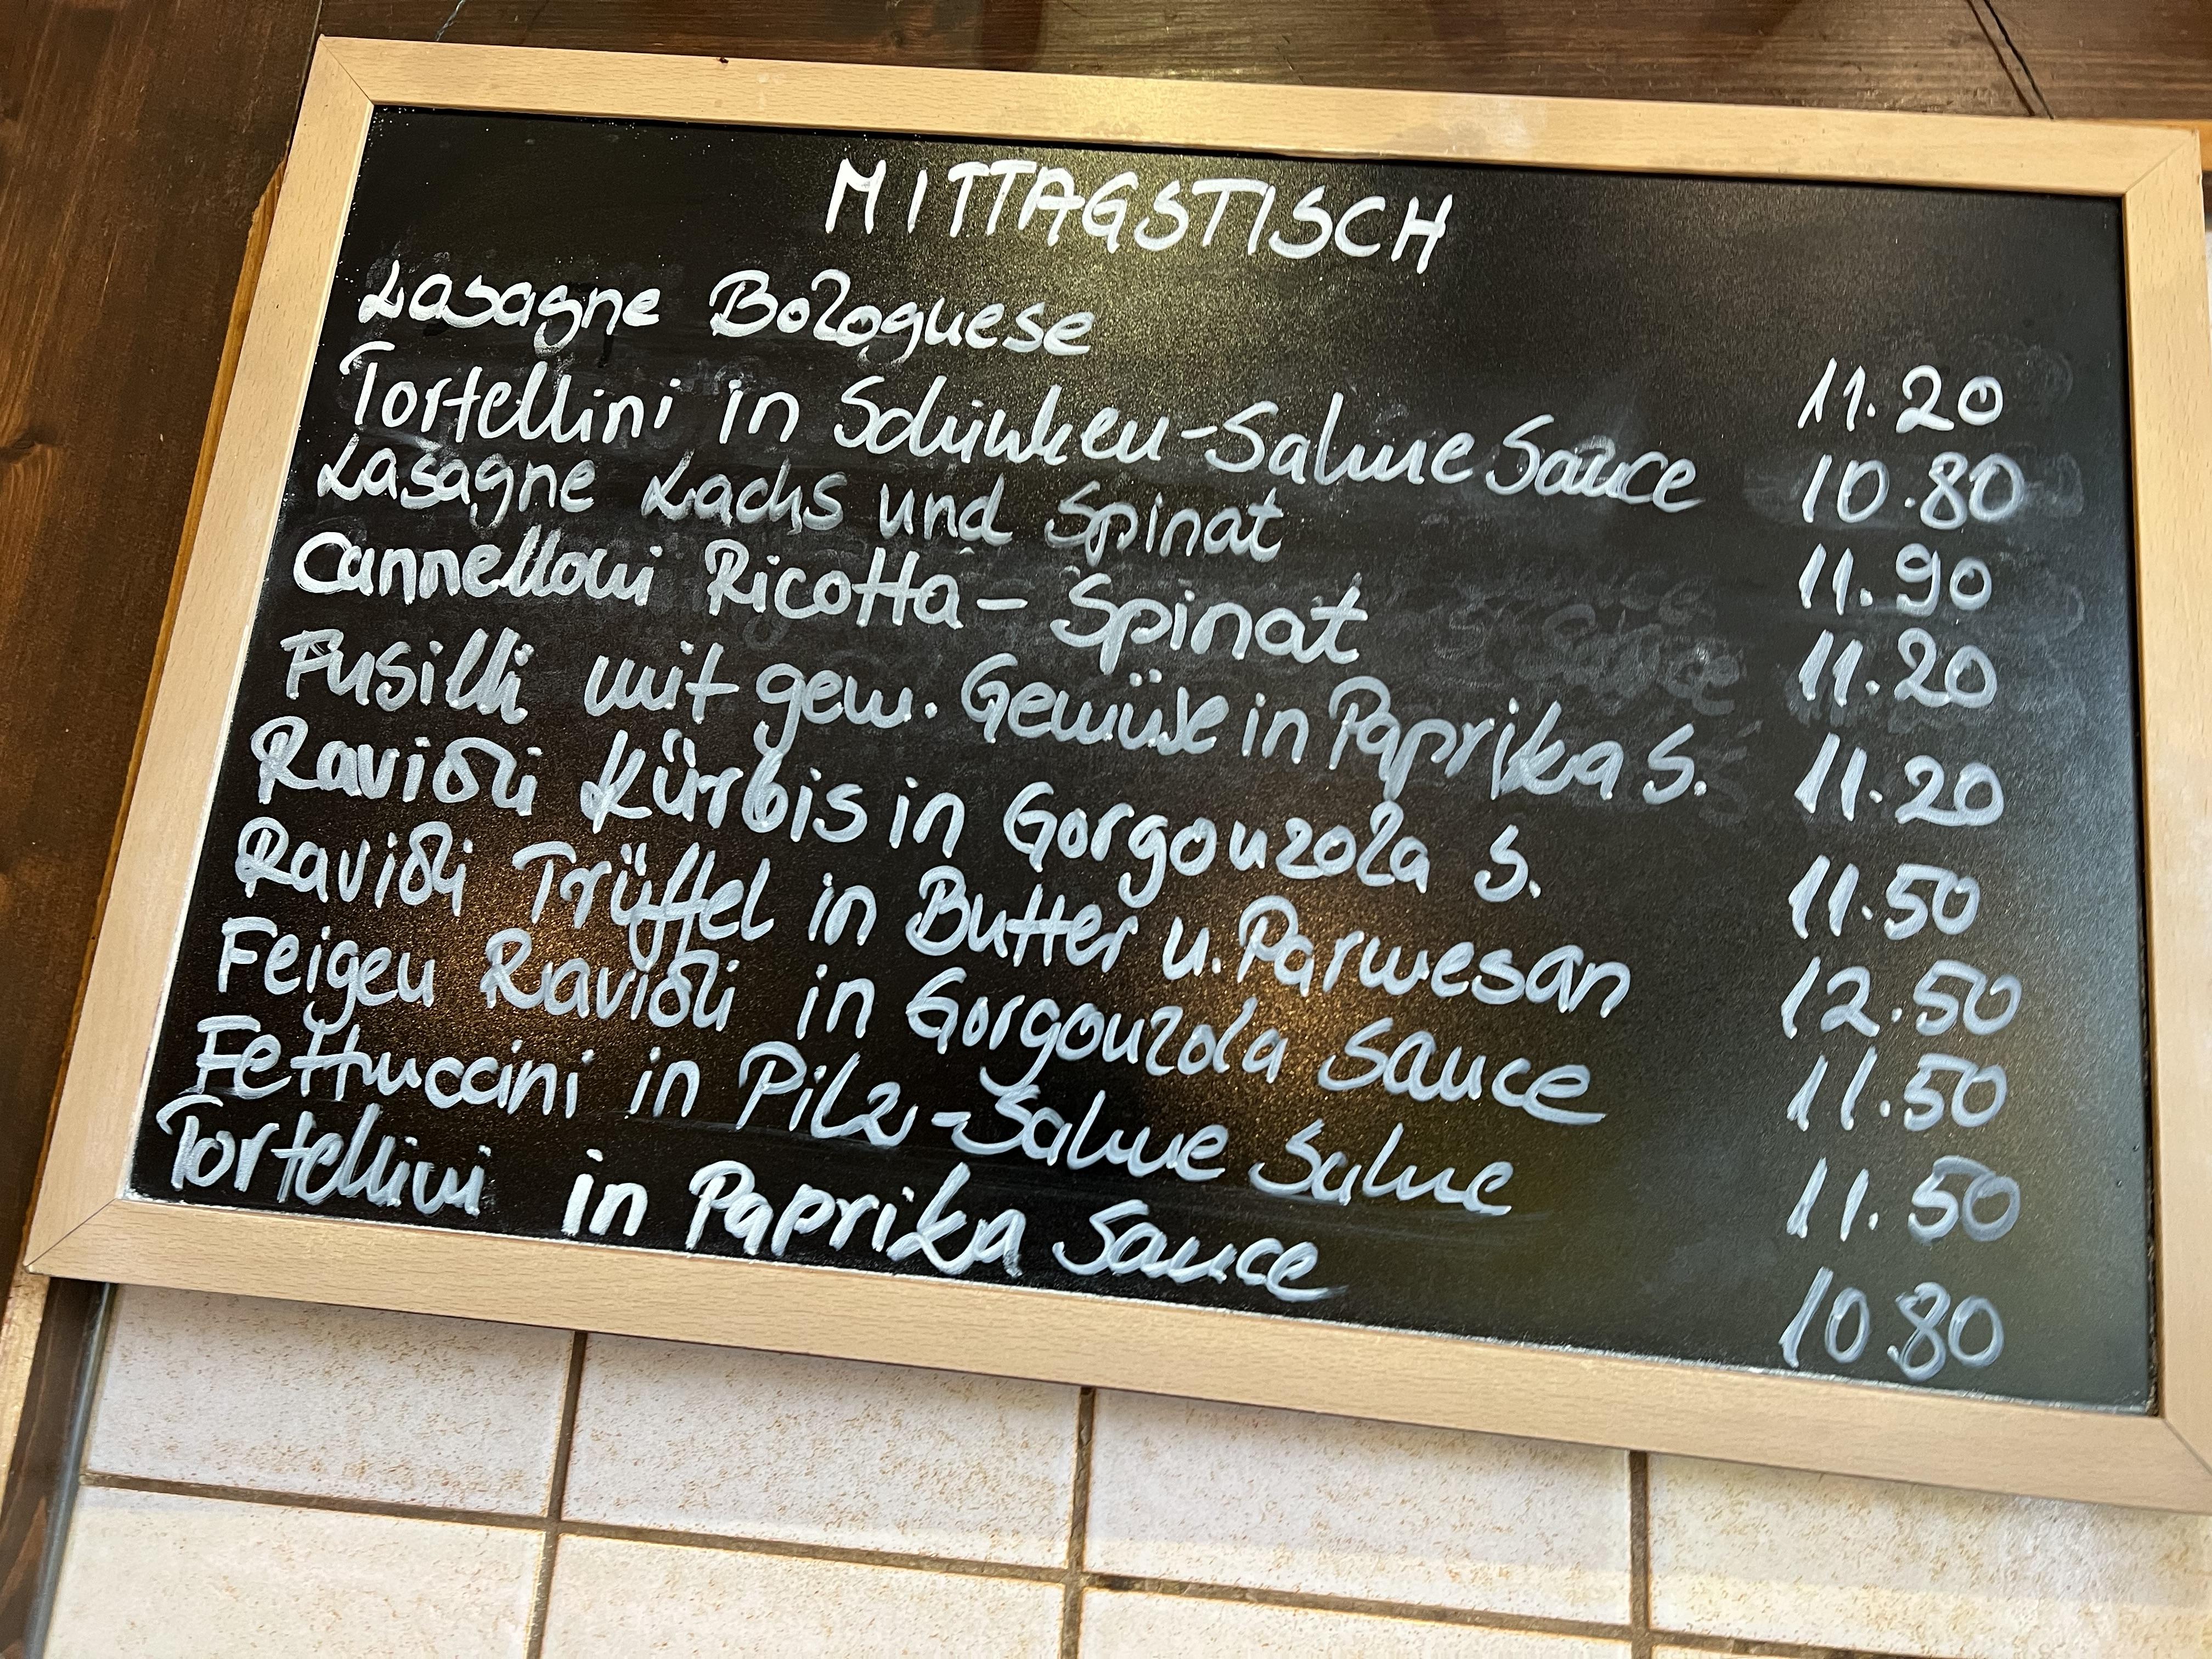 MITTAGSTISCH
Lasagne Bolognese 11.20
Tortellini in Schinken-Sahne Sauce 10.80
Lasagne Lachs und Spinat 11.90
Cannelloni Ricotta - Spinat 11.20
Fusilli mit gem. Gemüse in Paprika S. 11.20
Ravioli Kürbis in Gorgonzola S. 11.50
Ravioli Trüffel in Butter u. Parmesan 12.50
Feigen Ravioli in Gorgonzola Sauce 11.50
Fettuccini in Pilz-Sahne Sahne 11.50
Tortellini in Paprika Sauce 10 80